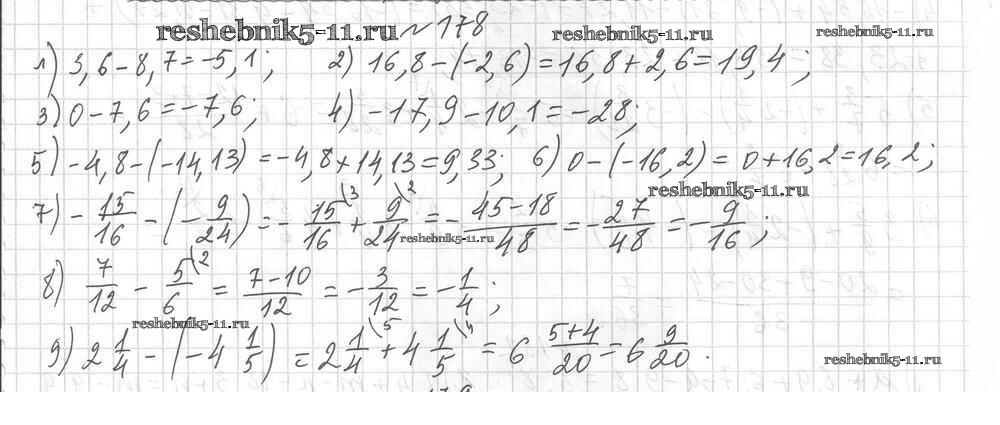 reshebnik5-11.ru № 178 reshebnik5-11.ru
1) 3,6 − 8,7 = −5,1; 2) 16,8 − (−2,6) = 16,8 + 2,6 = 19,4;
3) 0 − 7,6 = −7,6; 4) −17,9 − 10,1 = −28;
5) −4,8 − (−14,13) = −4,8 + 14,13 = 9,33; 6) 0 − (−16,2) = 0 + 16,2 = 16,2;
reshebnik5-11.ru
7) − 15/16 − (− 9/24) = − 15/16 \3 + 9/24 \2 = − 45−18/48 = − 27/48 = − 9/16;
reshebnik5-11.ru
8) 7/12 − 5/6 \2 = 7−10/12 = − 3/12 = − 1/4;
reshebnik5-11.ru
9) 2 1/4 − (−4 1/5) = 2 1/4 \5 + 4 1/5 \4 = 6 5+4/20 = 6 9/20.
reshebnik5-11.ru